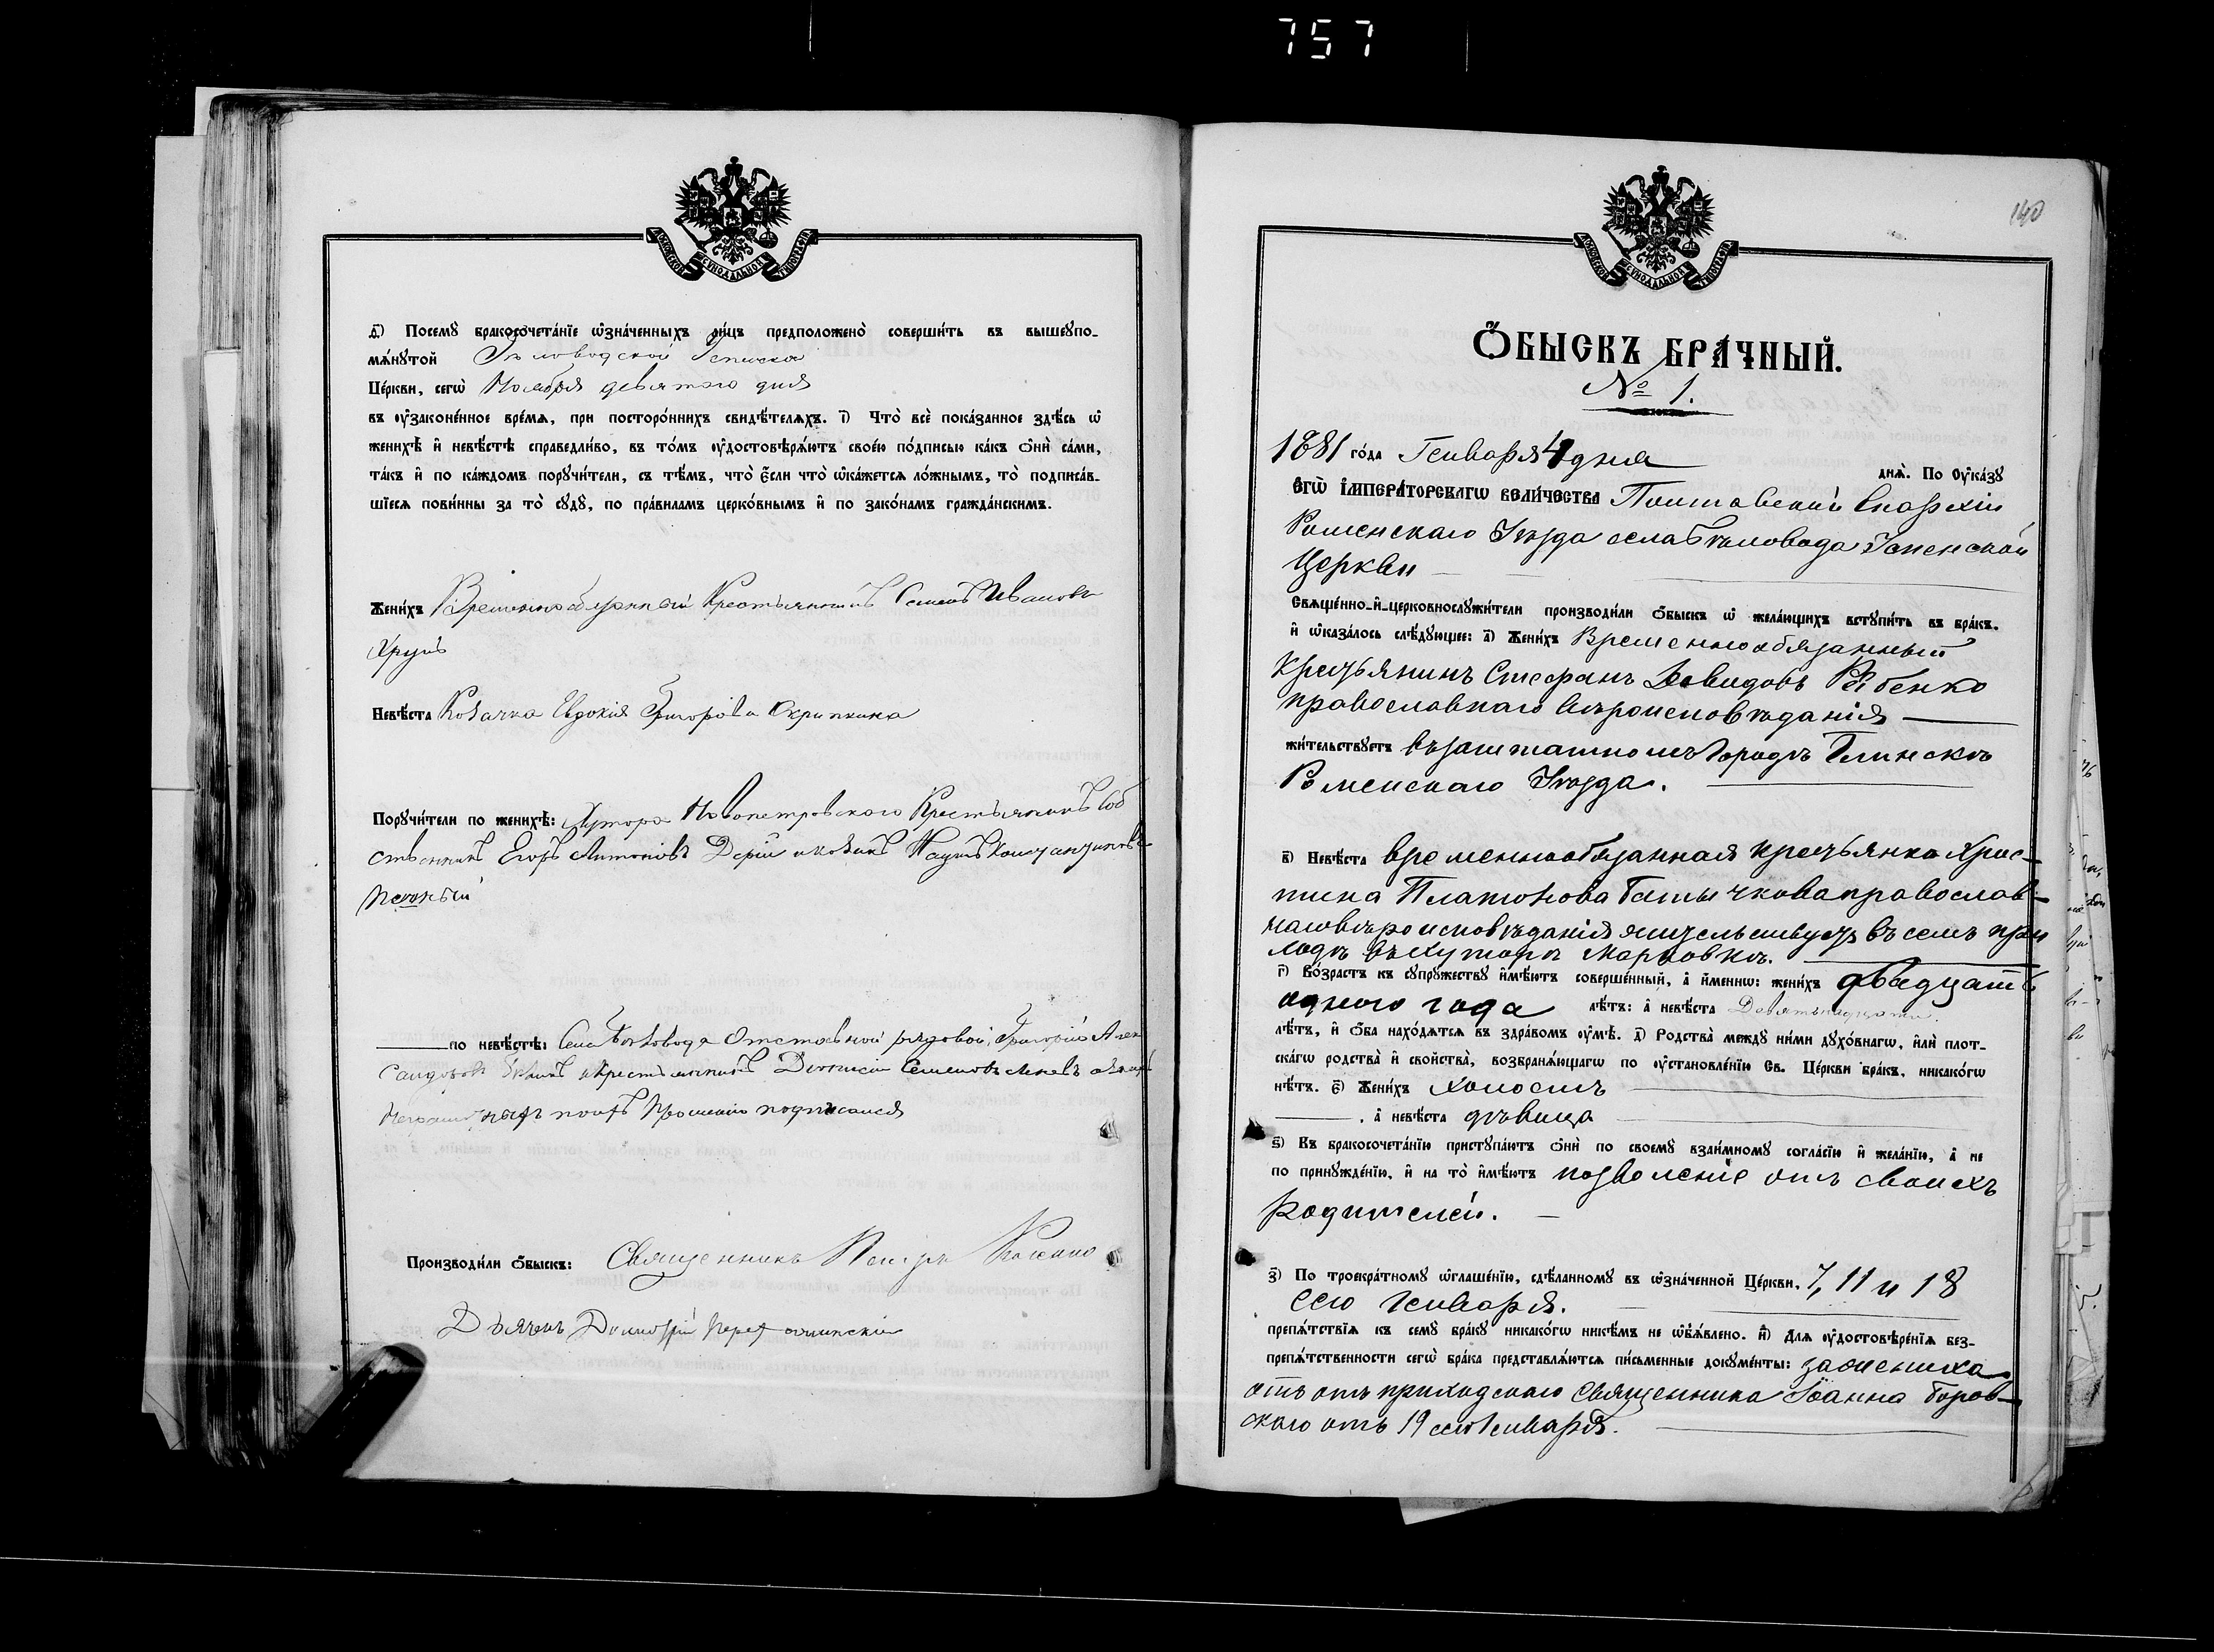 757
МОСКОВСКОЙ СУНОДАЛЬНОЙ ТИПОГРАФІИ
д҃) Посемꙋ̀ бракосочета́нїе ѡ҆зна́ченныхъ ли́цъ предположено̀ соверши́ть въ вышеꙋпо-
мѧ́нꙋтой Бѣловодской Успенской
Це́ркви, сегѡ̀ Ноября девятого дня
въ ᲂу҆законе́нное вре́мѧ, при посторо́ннихъ свидѣ́телѧхъ. і҃) Что̀ всѐ пока́занное здѣ́сь ѡ҆
женихѣ̀ и҆ невѣ́стѣ справедли́во, въ то́мъ ᲂу҆достовѣрѧ́ютъ свое́ю по́дписью ка́къ ѻ҆нѝ са́ми,
та́къ и҆ по ка́ждомъ порꙋчи́тели, съ тѣ́мъ, что̀ є҆́сли что̀ ѡ҆ка́жетсѧ ло́жнымъ, то̀ подписа́в-
шїесѧ пови́нны за то̀ сꙋдꙋ̀, по пра́виламъ церко́внымъ и҆ по зако́намъ гражда́нскимъ.
Жени́хъ Временнообязанный Крестьянинъ Семенъ Ивановъ
Хрупъ
Невѣ́ста Козачка Евдокія Григорова Скрипкина
Порꙋчи́тели по женихѣ̀: Хутора Новопетровского Крестьянинъ Соб
ственникъ Егоръ Антоновъ и козакъ Наумъ Константиновъ
по невѣ́стѣ: Села Бѣловода Отставной рядовой Григорій Алек
сандровъ и Крестьянинъ Діонисій Семеновъ
подписался
Производи́ли ѻ҆́быскъ: Священникъ Петръ
Дьячекъ Димитрій
140
МОСКОВСКОЙ СУНОДАЛЬНОЙ ТИПОГРАФІИ
Ѻ҆́БЫСКЪ БРА́ЧНЫЙ.
№ 1.
1881 го́да Генваря 4 дня днѧ̀. По Ꙋ҆ка́зꙋ
Є҆гѡ̀ І҆мпера́торскагѡ вели́чества Полтавской Епархіи
Роменскаго Уѣзда села Бѣловода Успенской
Церкви
Сващє́нно-и҆-церковнослꙋжи́тели производи́ли ѻ҆́быскъ ѡ҆ жела́ющихъ встꙋпи́ть въ бра́къ.
и҆ ѡ҆каза́лось слѣ́дꙋющее: а҃) Жени́хъ Временнообязанный
кресьянинъ Стефанъ Давидовъ Рябенко
православнаго вѣроисповѣданія
жи́тельствꙋетъ въ заштатномъ городѣ Глинскѣ
Роменскаго Уѣзда.
в҃) Невѣ́ста временнообязанная кресьянка Хрис-
тина Платонова православ-
наго вѣроисповѣданія жительствуетъ въ семъ при
ходѣ въ хуторѣ Марковкѣ.
г҃) Во́зрастъ къ сꙋпрꙋ́жествꙋ и҆мѣ́ютъ соверше́нный, а҆ и҆́меннѡ: жени́хъ двадцать
одного года лѣ́тъ: а҆ невѣ́ста Девятнадцати
лѣ́тъ, и҆ ѻ҆́ба нахо́дѧтсѧ въ здра́вомъ ᲂу҆мѣ̀. д҃) Родства̀ междꙋ̀ ни́ми дꙋхо́внагѡ, и҆лѝ плот-
ска́гѡ родства̀ и҆ сво́йства, возбранѧ́ющагѡ по ᲂу҆становле́нїю Св. Це́ркви бра́къ, никако́гѡ
нѣ́тъ. є҃) Жени́хъ холостъ
, а҆ невѣ́ста дѣвица
ѕ҃) Къ бракосочета́нїю пристꙋпа́ютъ ѻ҆нѝ по своемꙋ̀ взаи́мномꙋ согла́сїю и҆ жела́нїю, а҆ не
по принꙋжде́нїю, и҆ на то̀ и҆мѣ́ютъ позволеніе отъ своихъ
Родителей.
з҃) По троекра́тномꙋ ѡ҆глаше́нїю, сдѣ́ланномꙋ въ ѡ҆зна́ченной Це́ркви, 7, 11 и 18
сего Генваря.
препѧ́тствїѧ къ семꙋ̀ бра́кꙋ никако́гѡ никѣ́мъ не ѡ҆б̾ѧ́влено. и҃) Длѧ ᲂу҆достовѣре́нїѧ без-
препѧ́тственности сегѡ̀ бра́ка представлѧ́ютсѧ пи́сьменные докꙋме́нты: за жениха
отъ отъ приходскаго Священника Іоанна Боров-
скаго отъ 19 сего Генваря.